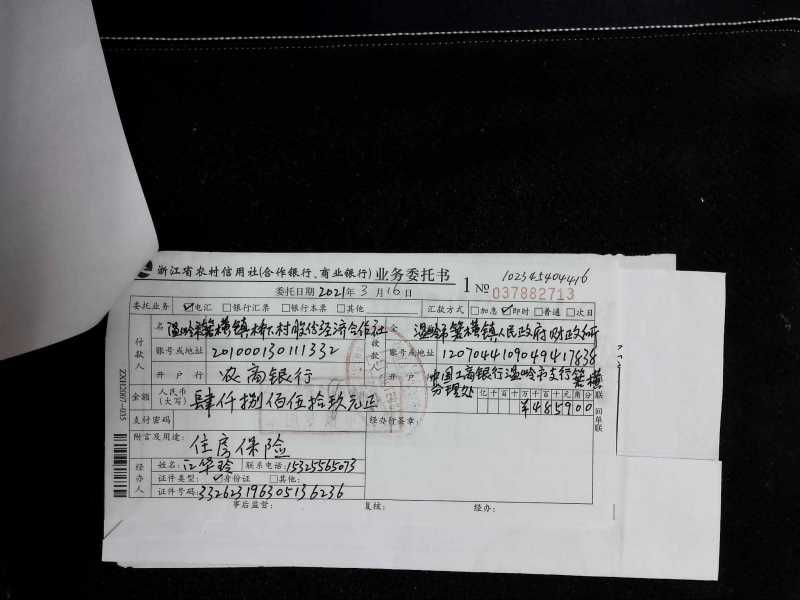 浙江省农村信用社(合作银行、商业银行) 业务委托书
102345404416
1 № 037882713
委托日期 2021年 3 月 16 日
委托业务 ☑电汇 □银行汇票 □银行本票 □其他 汇款方式 □加急 ☑即时 □普通 □次日
付款人 全称 温岭市箬横镇桥下村股份经济合作社
收款人 全称 温岭市箬横镇人民政府财政所
账号或地址 201000130111332
账号或地址 1207044109049417838
开户行 农商银行
开户行 中国工商银行温岭市支行箬横分理处
金额 人民币(大写) 肆仟捌佰伍拾玖元正
亿 千 百 十 万 千 百 十 元 角 分
¥485900
支付密码
经办行签章:
附言及用途:
住房保险
经办人 姓名: 江华玲 联系电话: 15325565073
证件类型: ☑身份证 □其他:
证件号码: 332623196305136236
事后监督: 复核: 经办:
回单联
ZXD2007-035